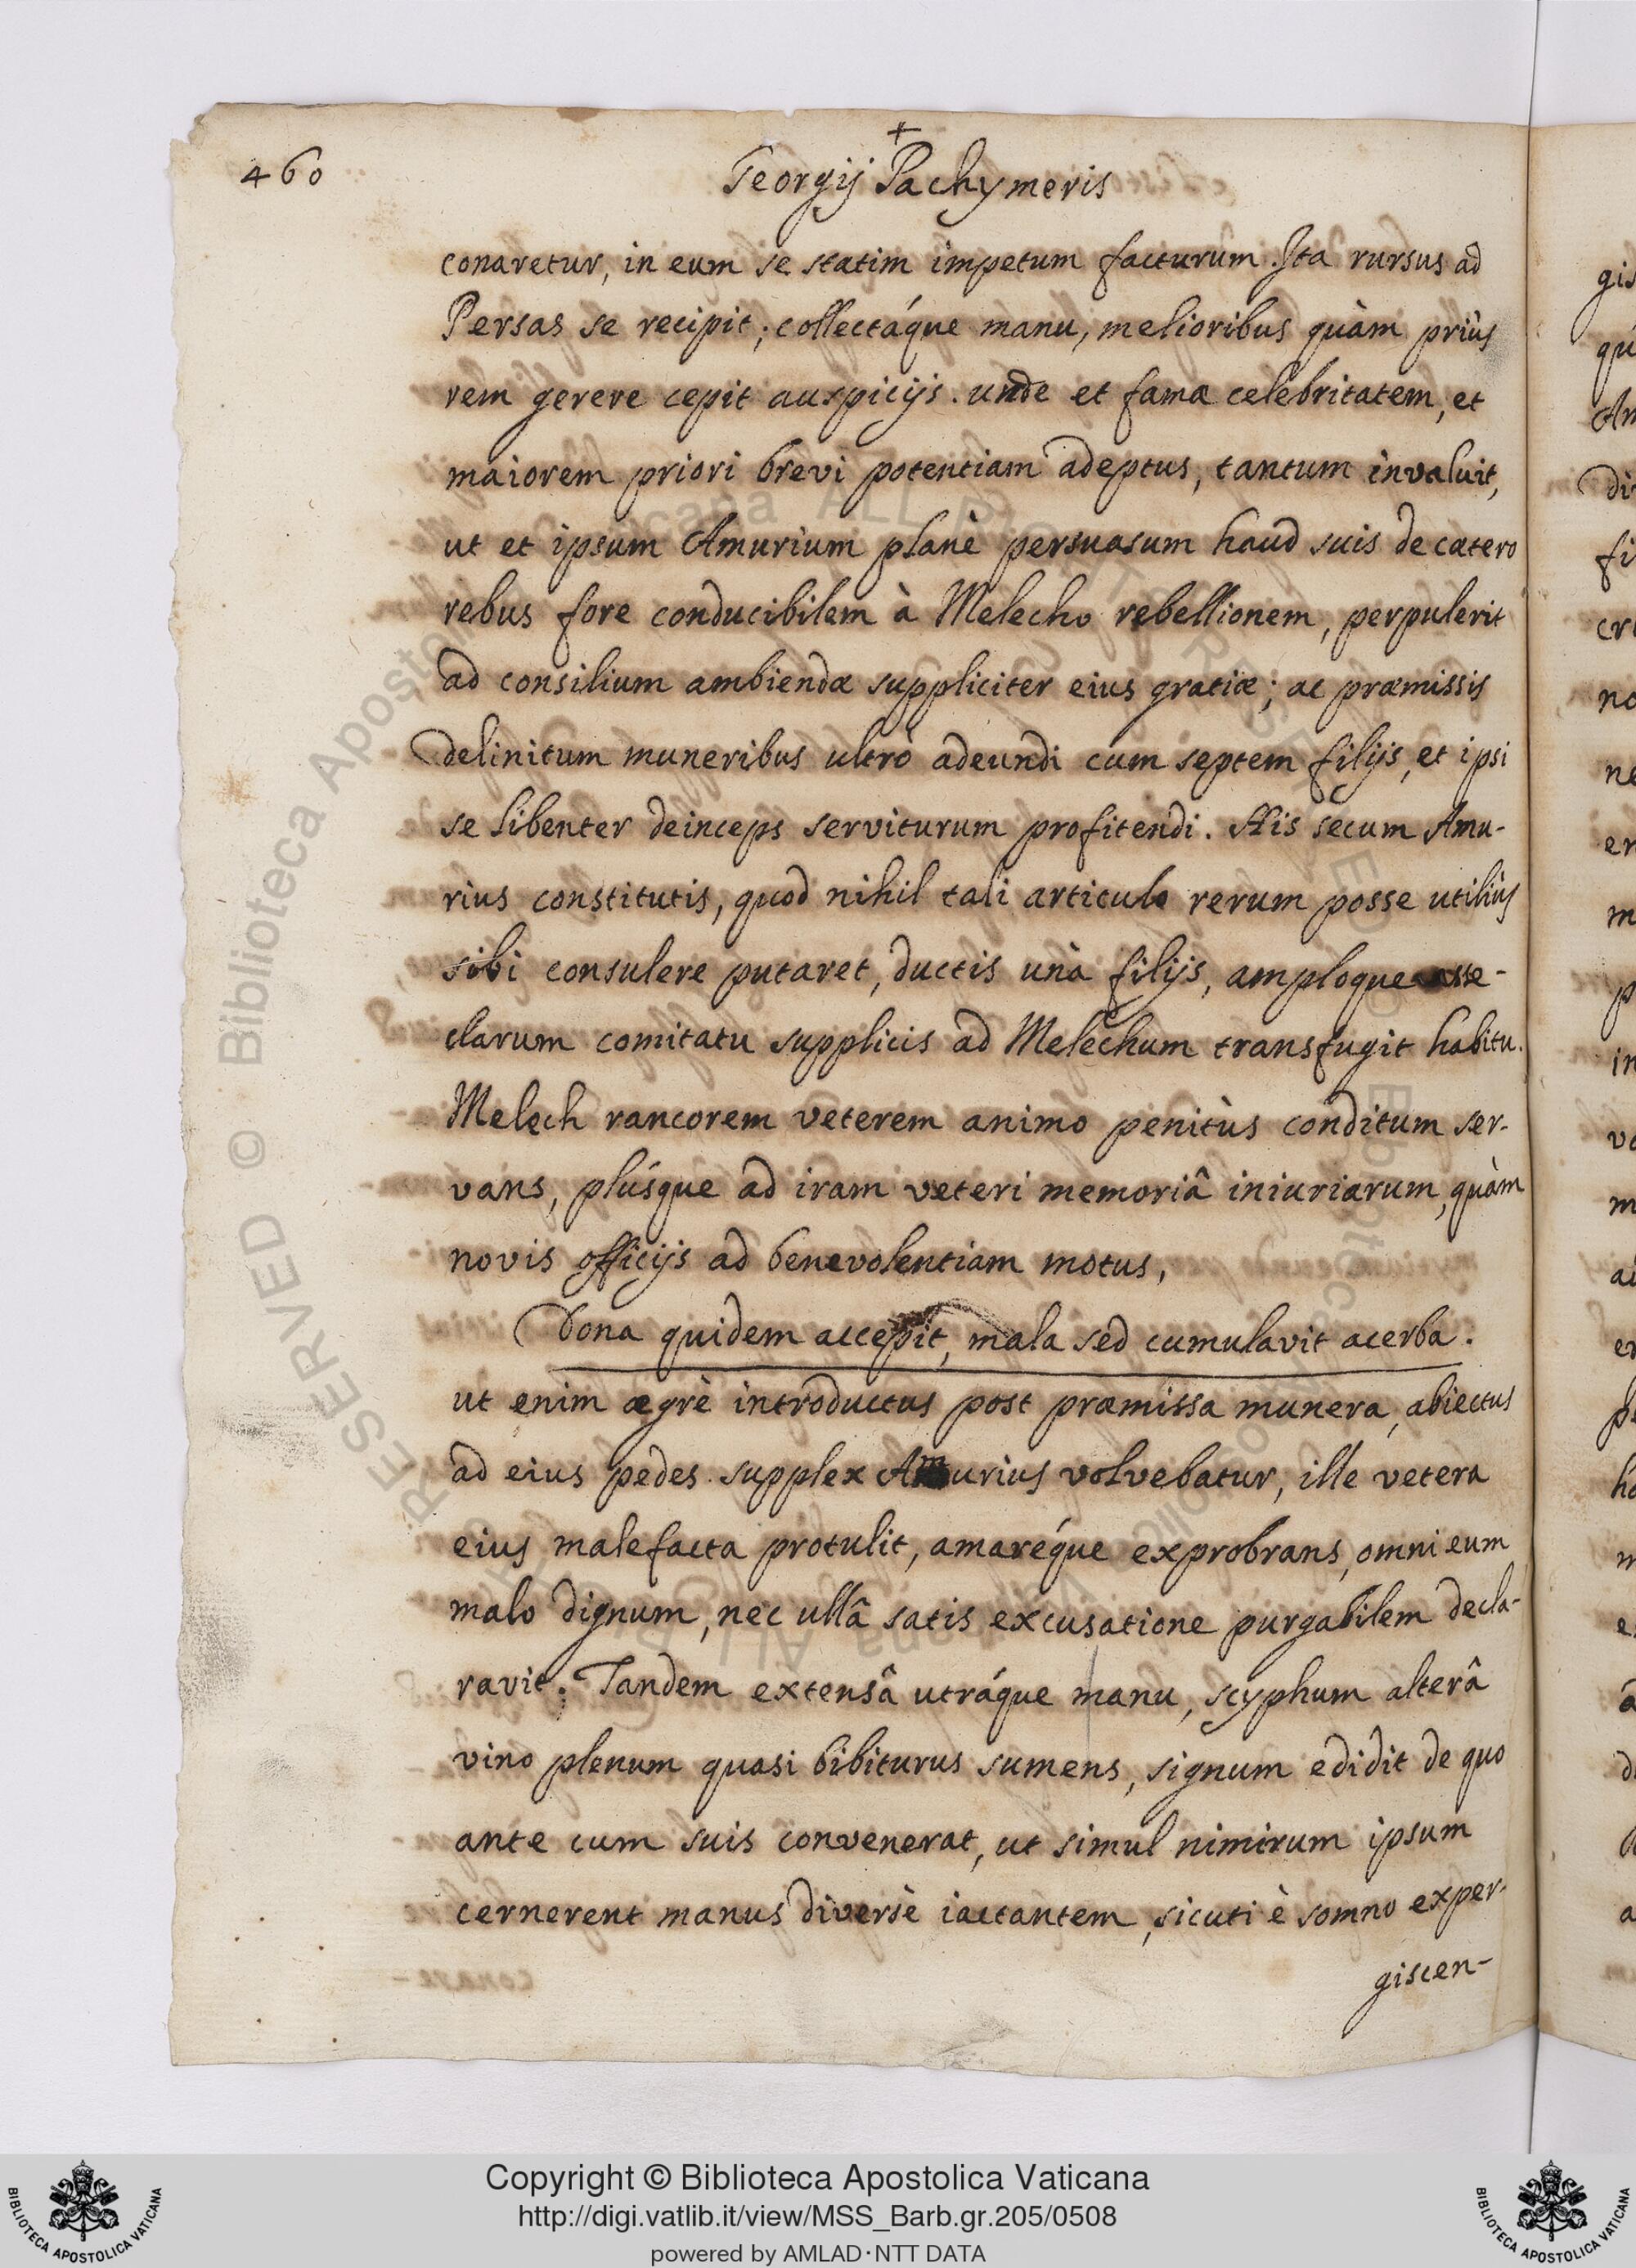 460
Georgij Pachymeris
conaretur, in eum se statim impetum facturum. Ita rursus ad
Persas se recipit; collectáque manu, melioribus quàm priùs
rem gerere cepit auspicijs. unde et famæ celebritatem, et
maiorem priori brevi potentiam adeptus, tantum invaluit,
ut et ipsum Amurium planè persuasum haud suis de cætero
rebus fore conducibilem à Melecho rebellionem, perpulerit
ad consilium ambiendæ suppliciter eius gratiæ; ac præmissis
delinitum muneribus ultrò adeundi cum septem filijs, et ipsi
se libenter deinceps serviturum profitendi. His secum Amu-
rius constitutis, quod nihil tali articulo rerum posse utiliùs
sibi consulere putaret, ductis unà filijs, amploque asse-
clarum comitatu supplicis ad Melechum transfugit habitu.
Melech rancorem veterem animo penitùs conditum ser-
vans, plúsque ad iram veteri memoriâ iniuriarum, quàm
novis officijs ad benevolentiam motus,
Dona quidem accepit, mala sed cumulavit acerba.
ut enim ægrè introductus post præmissa munera, abiectus
ad eius pedes supplex Amurius volvebatur, ille vetera
eius malefacta protulit, amaréque exprobrans, omni eum
malo dignum, nec ullâ satis excusatione purgabilem decla-
ravit. Tandem extensâ utráque manu, scyphum alterâ
vino plenum quasi bibiturus sumens, signum edidit de quo
ante cum suis convenerat, ut simul nimirum ipsum
cernerent manus diversè iactantem, sicuti è somno exper-
giscen-
Copyright © Biblioteca Apostolica Vaticana
http://digi.vatlib.it/view/MSS_Barb.gr.205/0508
powered by AMLAD·NTT DATA
BIBLIOTECA APOSTOLICA VATICANA
BIBLIOTECA APOSTOLICA VATICANA